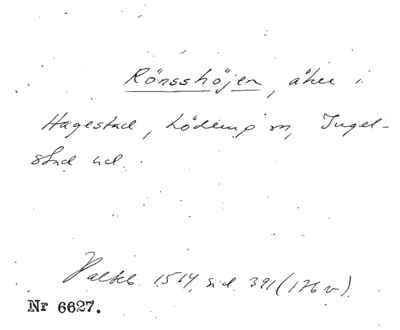 Rönsshöjen, åker i
Hagestad, Löderup sn, Ingel-
stad hd.
Palteb. 1514, sid. 391 (176 v).
Nr 6627.